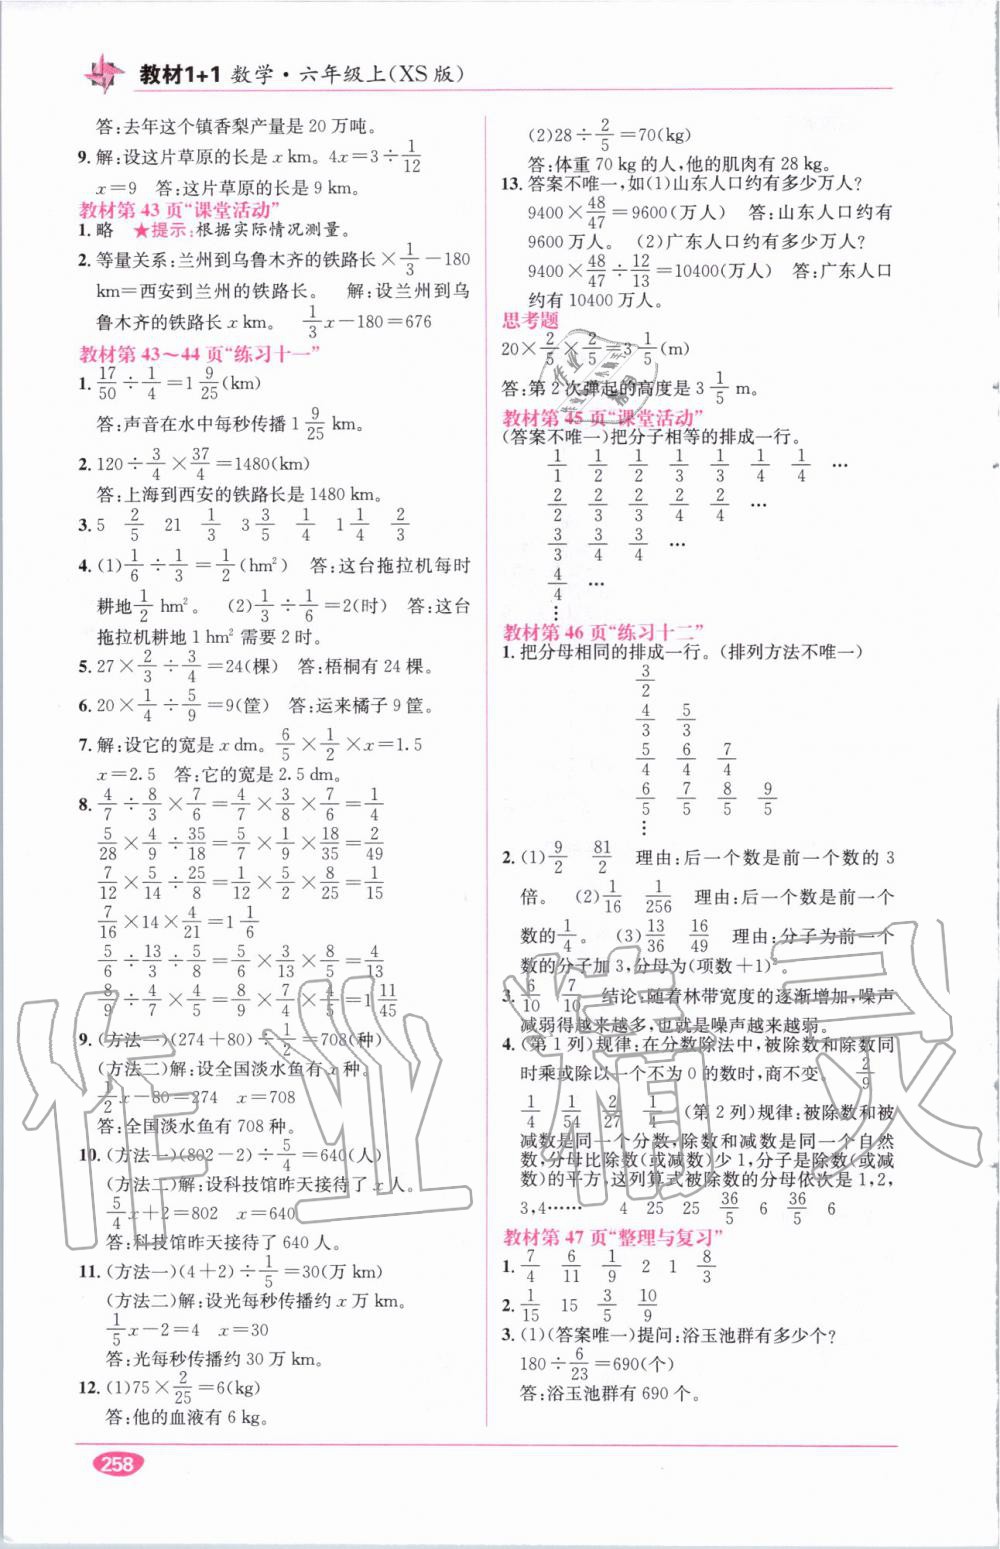 教材1+1 数学·六年级上(XS版)
答:去年这个镇香梨产量是 20 万吨。
9. 解:设这片草原的长是 x km。4x=3÷1/12
x=9 答:这片草原的长是 9 km。
教材第 43 页“课堂活动”
1. 略 ★提示:根据实际情况测量。
2. 等量关系:兰州到乌鲁木齐的铁路长×1/3-180
km=西安到兰州的铁路长。 解:设兰州到乌
鲁木齐的铁路长 x km。 1/3x-180=676
教材第 43～44 页“练习十一”
1. 17/50÷1/4=1 9/25(km)
答:声音在水中每秒传播 1 9/25 km。
2. 120÷3/4×37/4=1480(km)
答:上海到西安的铁路长是 1480 km。
3. 5 2/5 21 1/3 3 3/5 1/4 1 1/4 2/3
4. (1)1/6÷1/3=1/2(hm²) 答:这台拖拉机每时
耕地1/2 hm²。 (2)1/3÷1/6=2(时) 答:这台
拖拉机耕地 1 hm² 需要 2 时。
5. 27×2/3÷3/4=24(棵) 答:梧桐有 24 棵。
6. 20×1/4÷5/9=9(筐) 答:运来橘子 9 筐。
7. 解:设它的宽是 x dm。6/5×1/2×x=1.5
x=2.5 答:它的宽是 2.5 dm。
8. 4/7÷8/3×7/6=4/7×3/8×7/6=1/4
5/28×4/9÷35/18=5/7×1/9×18/35=2/49
7/12×5/14÷25/8=1/12×5/2×8/25=1/15
7/16×14×4/21=1 1/6
5/6÷13/5÷5/8=5/6×3/13×8/5=4/13
8/9÷4/7÷4/5=8/9×7/4×5/4=1 11/45
9. (方法一)(274+80)÷1/2=708(种)
(方法二)解:设全国淡水鱼有 x 种。
1/2x-80=274 x=708
答:全国淡水鱼有 708 种。
10. (方法一)(802-2)÷5/4=640(人)
(方法二)解:设科技馆昨天接待了 x 人。
5/4x+2=802 x=640
答:科技馆昨天接待了 640 人。
11. (方法一)(4+2)÷1/5=30(万 km)
(方法二)解:设光每秒传播约 x 万 km。
1/5x-2=4 x=30
答:光每秒传播约 30 万 km。
12. (1)75×2/25=6(kg)
答:他的血液有 6 kg。
(2)28÷2/5=70(kg)
答:体重 70 kg 的人,他的肌肉有 28 kg。
13. 答案不唯一,如(1)山东人口约有多少万人?
9400×48/47=9600(万人) 答:山东人口约有
9600 万人。 (2)广东人口约有多少万人?
9400×48/47÷12/13=10400(万人) 答:广东人口
约有 10400 万人。
思考题
20×2/5×2/5=3 1/5(m)
答:第 2 次弹起的高度是 3 1/5 m。
教材第 45 页“课堂活动”
(答案不唯一)把分子相等的排成一行。
1/1 1/2 1/2 1/3 1/3 1/4 1/4 …
2/2 2/3 2/3 2/4 2/4 …
3/3 3/4 3/4 …
4/4 …
⋮
教材第 46 页“练习十二”
1. 把分母相同的排成一行。(排列方法不唯一)
3/2
4/3 5/3
5/4 6/4 7/4
6/5 7/5 8/5 9/5
⋮
2. (1)9/2 81/2 理由:后一个数是前一个数的 3
倍。 (2)1/16 1/256 理由:后一个数是前一个
数的1/4。 (3)13/36 16/49 理由:分子为前一个
数的分子加 3,分母为(项数+1)²。
3. 6/10 7/10 结论:随着林带宽度的逐渐增加,噪声
减弱得越来越多,也就是噪声越来越弱。
4. (第 1 列)规律:在分数除法中,被除数和除数同
时乘或除以一个不为 0 的数时,商不变。 2/9
1/4 1/54 2/27 1/4 (第 2 列)规律:被除数和被
减数是同一个分数,除数和减数是同一个自然
数,分母比除数(或减数)少 1,分子是除数(或减
数)的平方,这列算式被除数的分母依次是 1,2,
3,4…… 4 25 25 36/5 6 36/5 6
教材第 47 页“整理与复习”
1. 7/4 6/11 1/9 2 1 8/3
2. 1/15 15 3/5 10/9
3. (1)(答案唯一)提问:浴玉池群有多少个?
180÷6/23=690(个)
答:浴玉池群有 690 个。
258
作业精灵